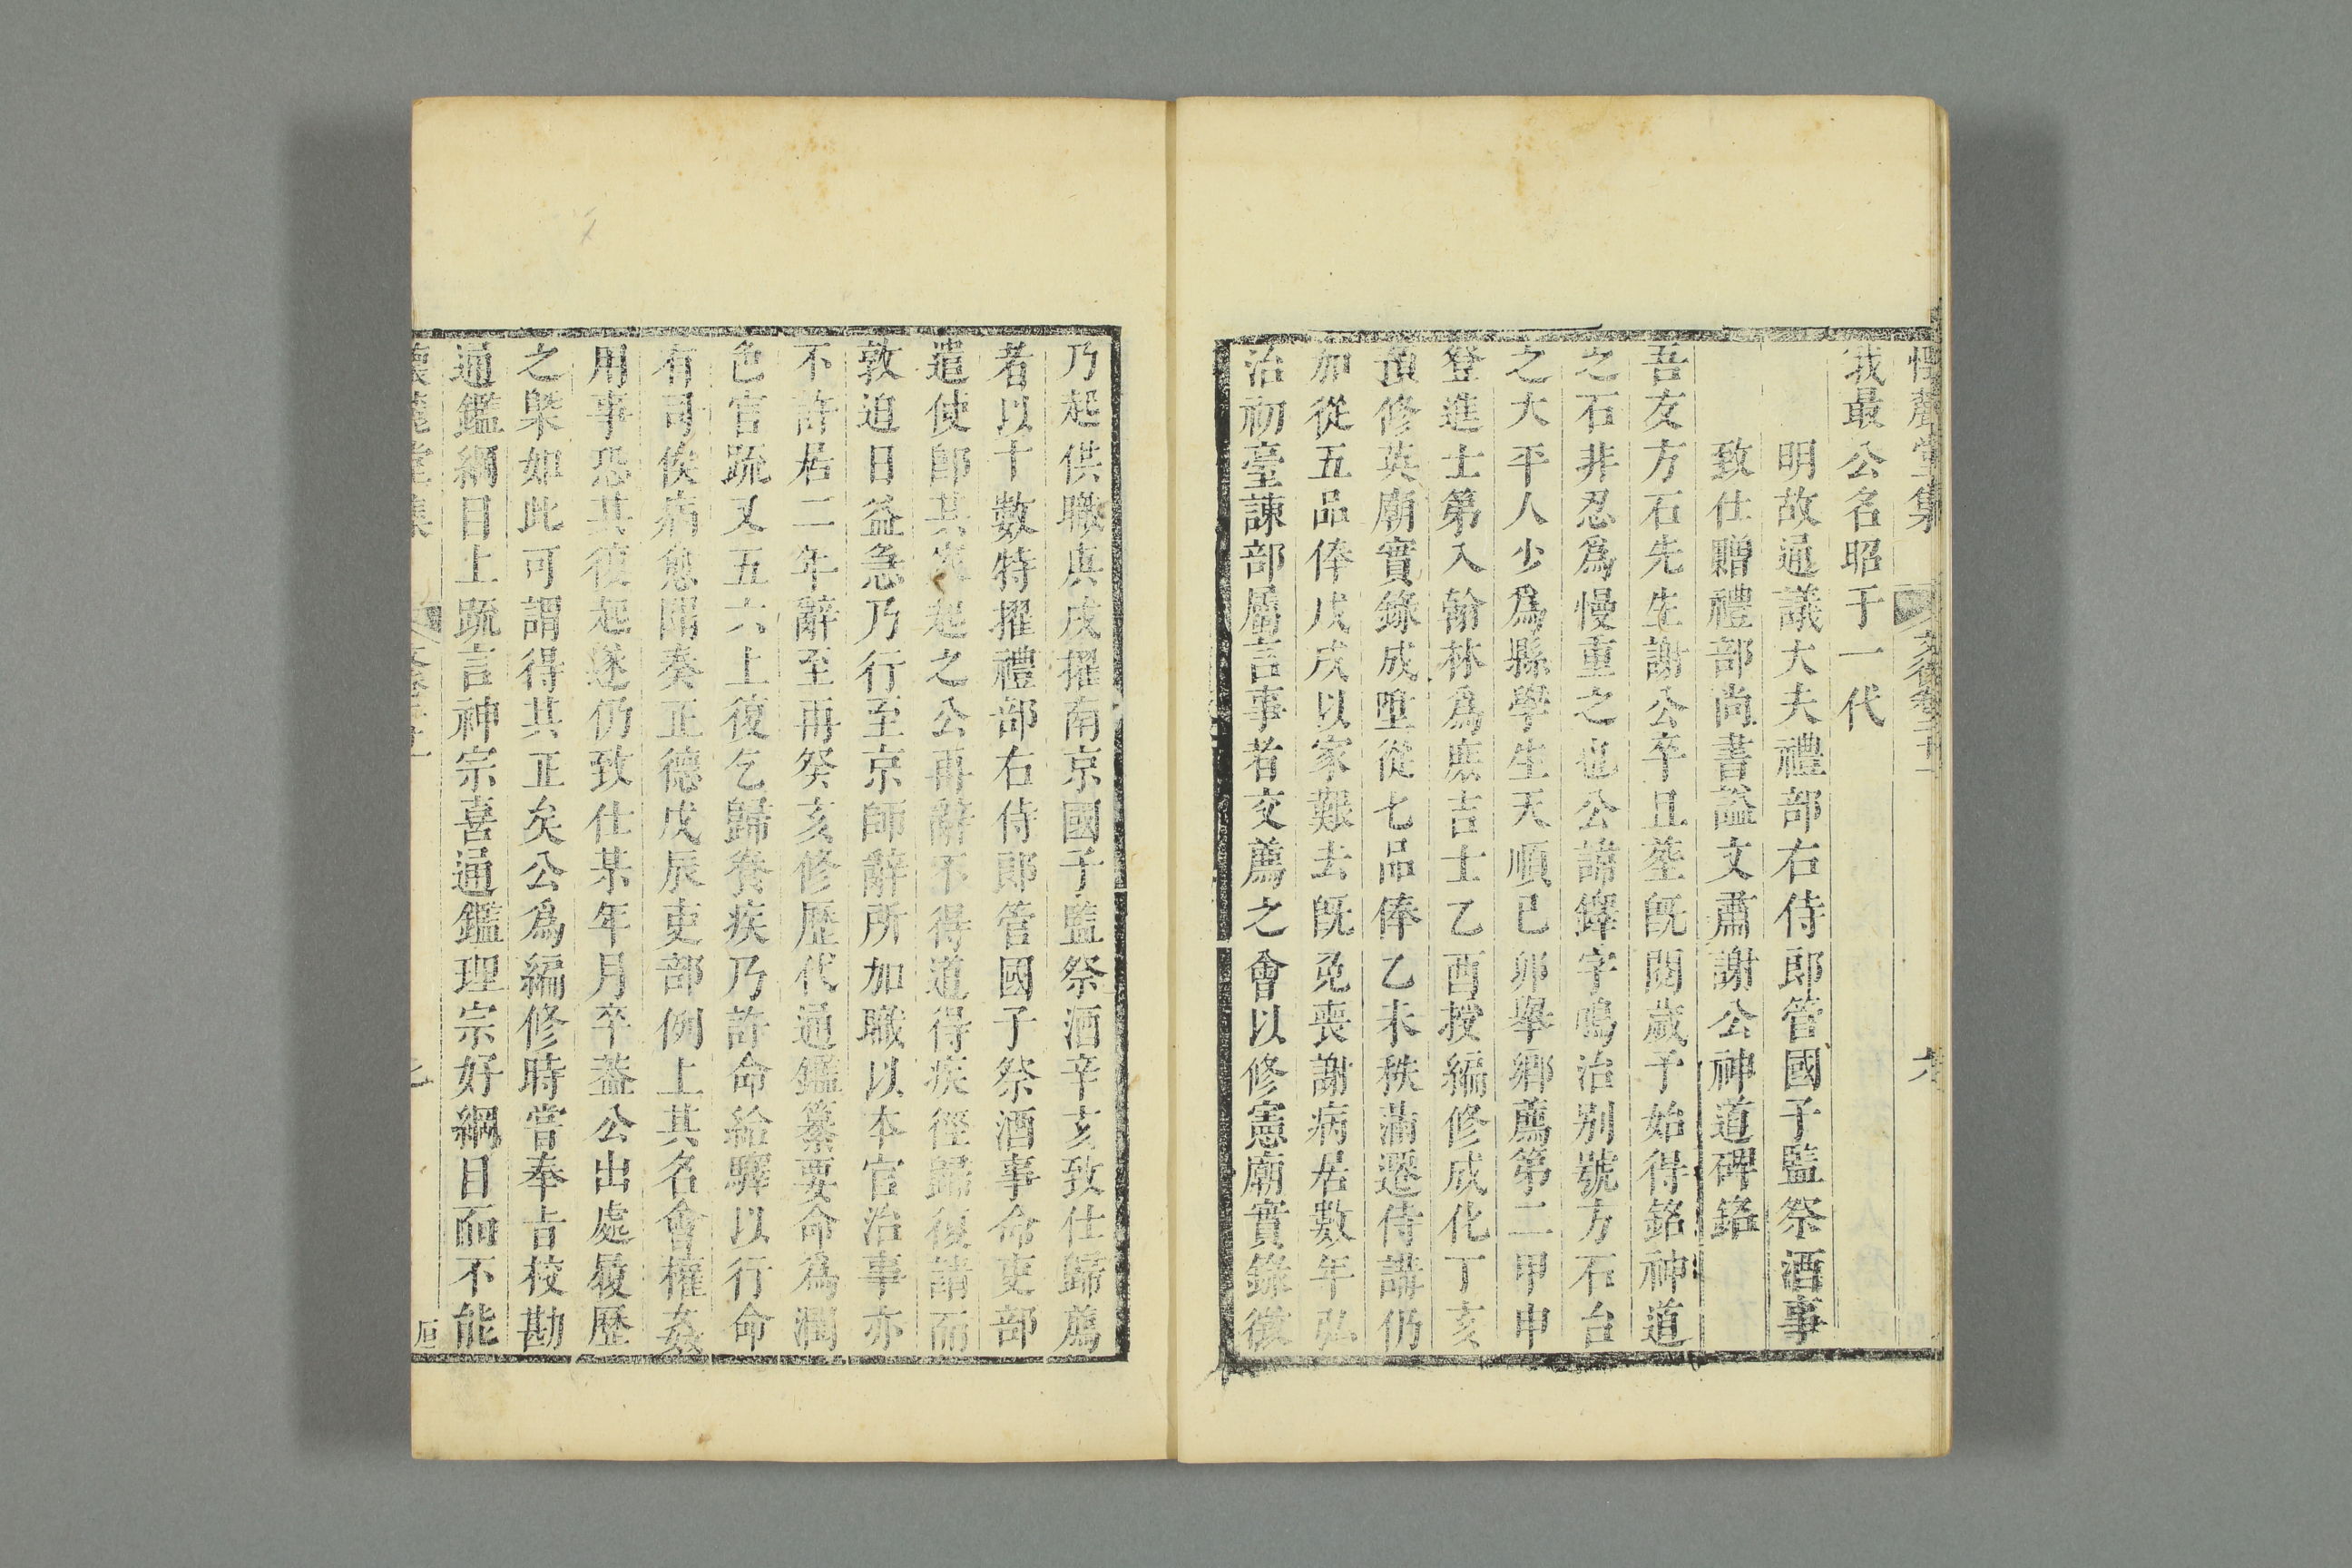 懷麓堂集 文後卷二十 六
我最公名昭于一代
明故通議大夫禮部右侍郎管國子監祭酒事
致仕贈禮部尚書諡文肅謝公神道碑銘
吾友方石先生謝公卒且塟既閱歲予始得銘神道
之石非忍爲慢重之也公諱鐸字鳴治别號方石台
之太平人少爲縣學生天順己卯舉鄉薦第二甲申
登進士第入翰林爲庶吉士乙酉授編修成化丁亥
預修英廟實錄成陞從七品俸乙未秩滿遷侍講仍
加從五品俸戊戌以家艱去既免喪謝病居數年弘
治初臺諫部屬言事者交薦之會以修憲廟實錄徵
乃起供職庚戌擢南京國子監祭酒辛亥致仕歸薦
者以十數特擢禮部右侍郎管國子祭酒事命吏部
遣使卽其家起之公再辭不得道得疾徑歸復請而
敦迫日益急乃行至京師辭所加職以本官治事亦
不許居二年辭至再癸亥修歷代通鑑纂要命爲潤
色官疏又五六上復乞歸養疾乃許命給驛以行命
有司俟病愈開奏正德戊辰吏部例上其名會權姦
用事恐其復起遂仍致仕某年月卒葢公出處履歷
之槩如此可謂得其正矣公爲編修時嘗奉㫖校勘
通鑑綱目上疏言神宗喜通鑑理宗好綱目而不能
懷麓堂集 七